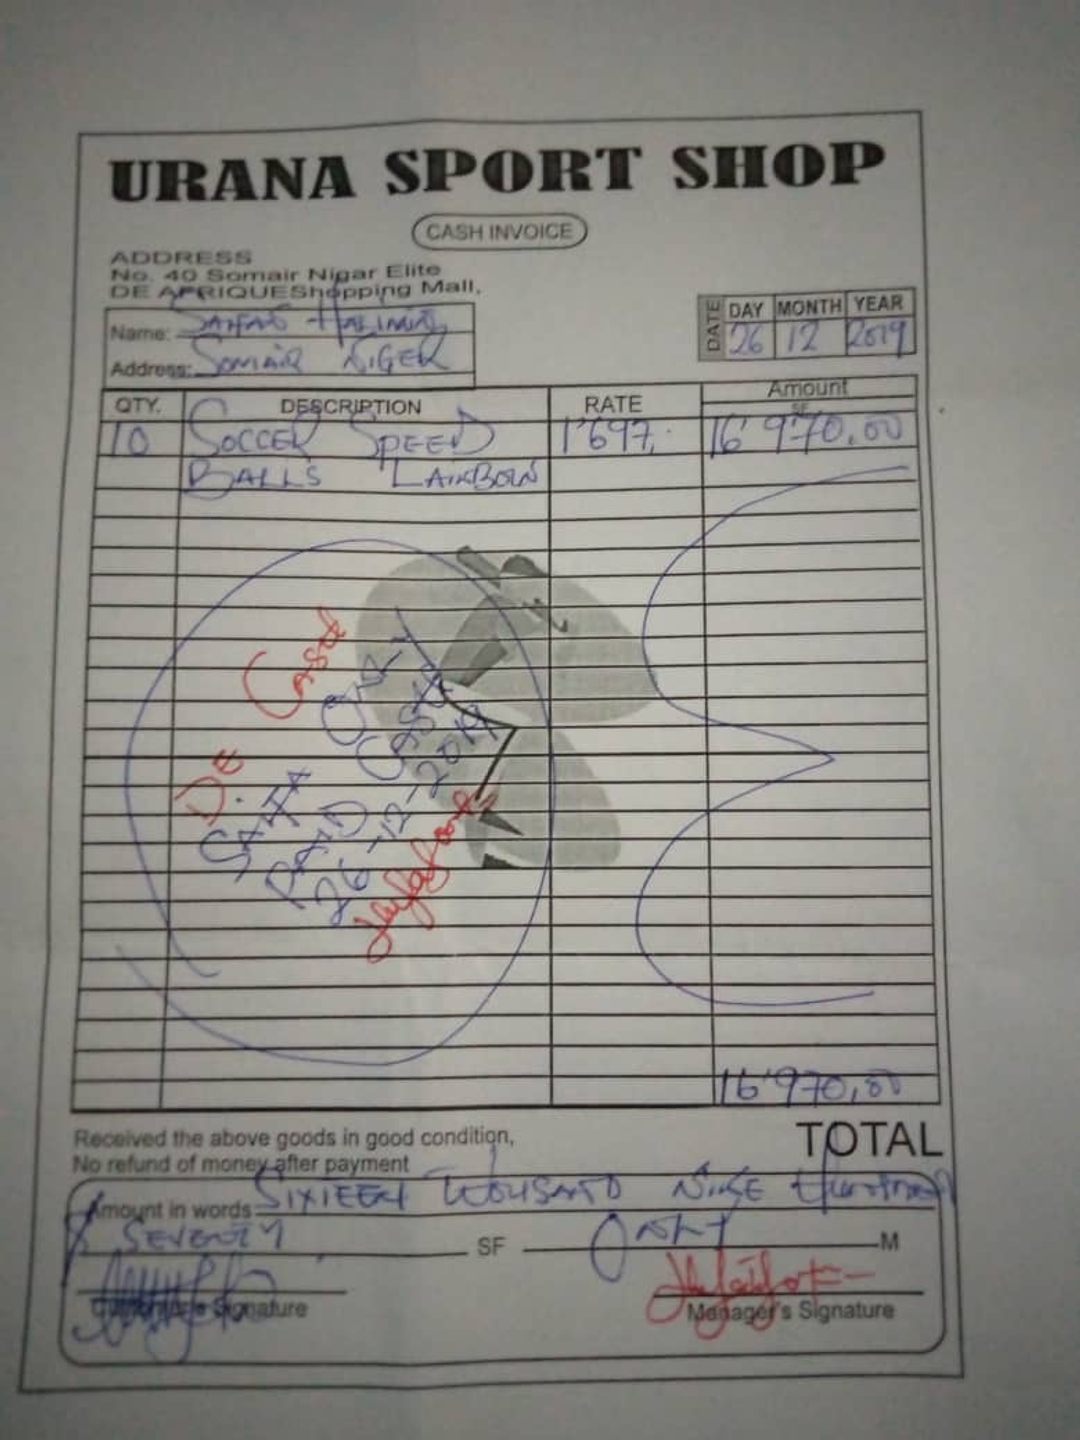 URANA SPORT SHOP
CASH INVOICE
ADDRESS
No. 40 Somair Nigar Elite
DE AFRIQUE Shopping Mall,
Name:
Address: SOMAIR NIGER
DATE DAY MONTH YEAR
26 12 2019
QTY. DESCRIPTION RATE Amount
SF
10 SOCCER SPEED 1'697, 16'970,00
BALLS
DE CASH
ONLY
CASH
PAID
26-12-2019
16'970,00
Received the above goods in good condition,
No refund of money after payment
TOTAL
Amount in words SIXTEEN THOUSAND NINE Hundred
& SEVENTY SF ONLY M
Signature
Manager's Signature